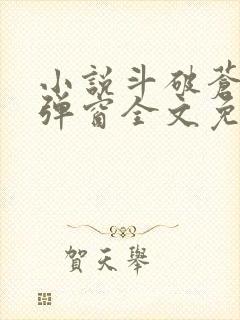 小說斗破蒼
彈窗全文免
賀天舉